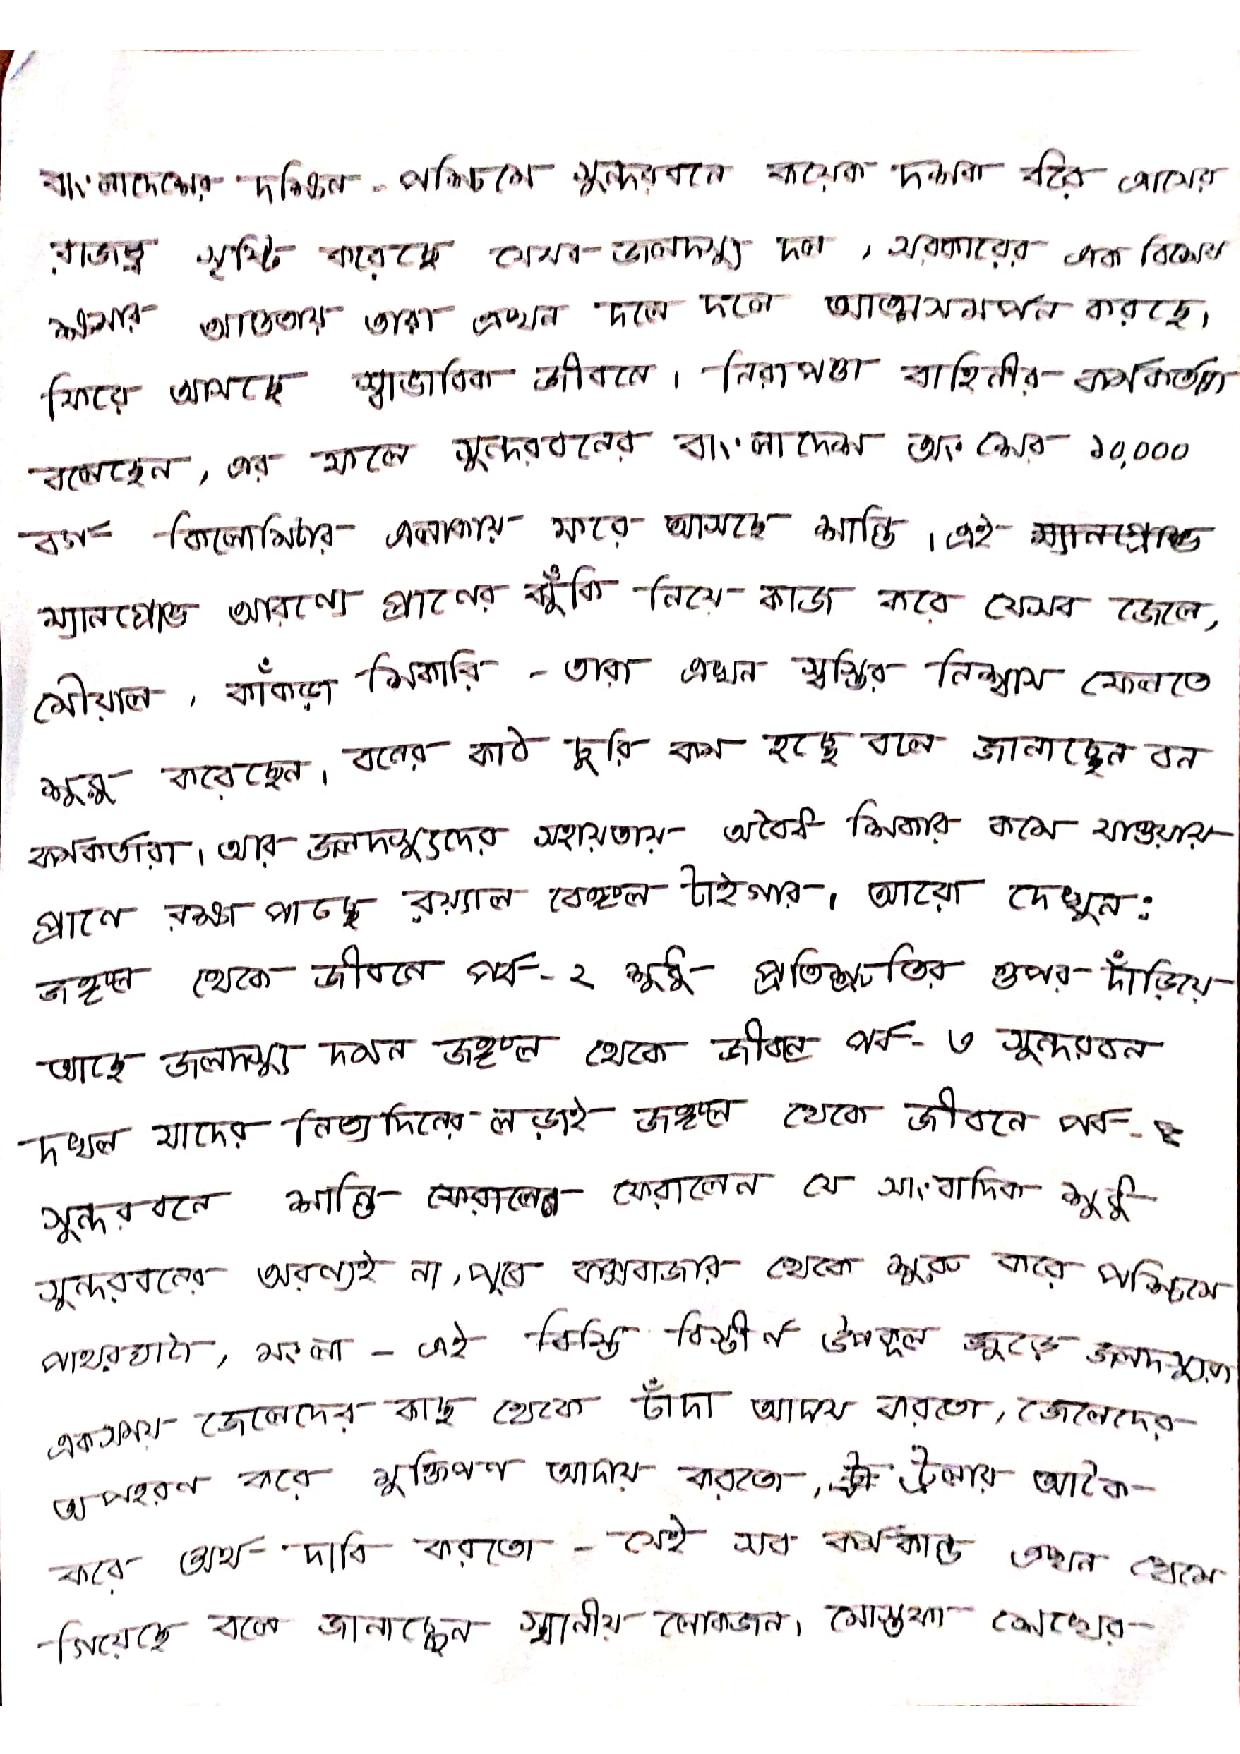 বাংলাদেশের দক্ষিণ-পশ্চিমে সুন্দরবনে কয়েক দশক ধরে ত্রাসের
রাজত্ব সৃষ্টি করেছে যেসব জলদস্যু দল, সরকারের এক বিশেষ
ক্ষমার আওতায় তারা এখন দলে দলে আত্মসমর্পন করছে,
ফিরে আসছে স্বাভাবিক জীবনে। নিরাপত্তা বাহিনীর কর্মকর্তারা
বলেছেন, এর ফলে সুন্দরবনের বাংলাদেশ অংশের ১০,০০০
বর্গ কিলোমিটার এলাকায় ফিরে আসছে শান্তি। এই ম্যানগ্রোভ
ম্যানগ্রোভ আরণ্যে প্রাণের ঝুঁকি নিয়ে কাজ করে যেসব জেলে,
মৌয়াল, কাঁকড়া শিকারি - তারা এখন স্বস্তির নিশ্বাস ফেলতে
শুরু করেছেন। বনের কাঠ চুরি কম হচ্ছে বলে জানাচ্ছেন বন
কর্মকর্তারা। আর জলদস্যুদের সহায়তায় অবৈধ শিকার কমে যাওয়ায়
প্রাণে রক্ষা পাচ্ছে রয়্যাল বেঙ্গল টাইগার। আরো দেখুন:
জঙ্গল থেকে জীবনে পর্ব-২ শুধু প্রতিশ্রুতির ওপর দাঁড়িয়ে
আছে জলদস্যু দমন জঙ্গল থেকে জীবনে পর্ব-৩ সুন্দরবন
দখল যাদের নিত্যদিনের লড়াই জঙ্গল থেকে জীবনে পর্ব-৪
সুন্দরবনে শান্তি ফেরালেন ফেরালেন যে সাংবাদিক শুধু
সুন্দরবনের অরণ্যই না, পূবে কক্সবাজার থেকে শুরু করে পশ্চিমে
পাথরঘাটা, মংলা - এই বিস্তি বিস্তীর্ন উপকূল জুড়ে জলদস্যুরা
একসময় জেলেদের কাছ থেকে চাঁদা আদায় করতো, জেলেদের
অপহরণ করে মুক্তিপণ আদায় করতো, ট্র ট্রলার আটক
করে অর্থ দাবি করতো - সেই সব কর্মকান্ড এখন থেমে
গিয়েছে বলে জানাচ্ছেন স্থানীয় লোকজন। মোস্তফা শেখের